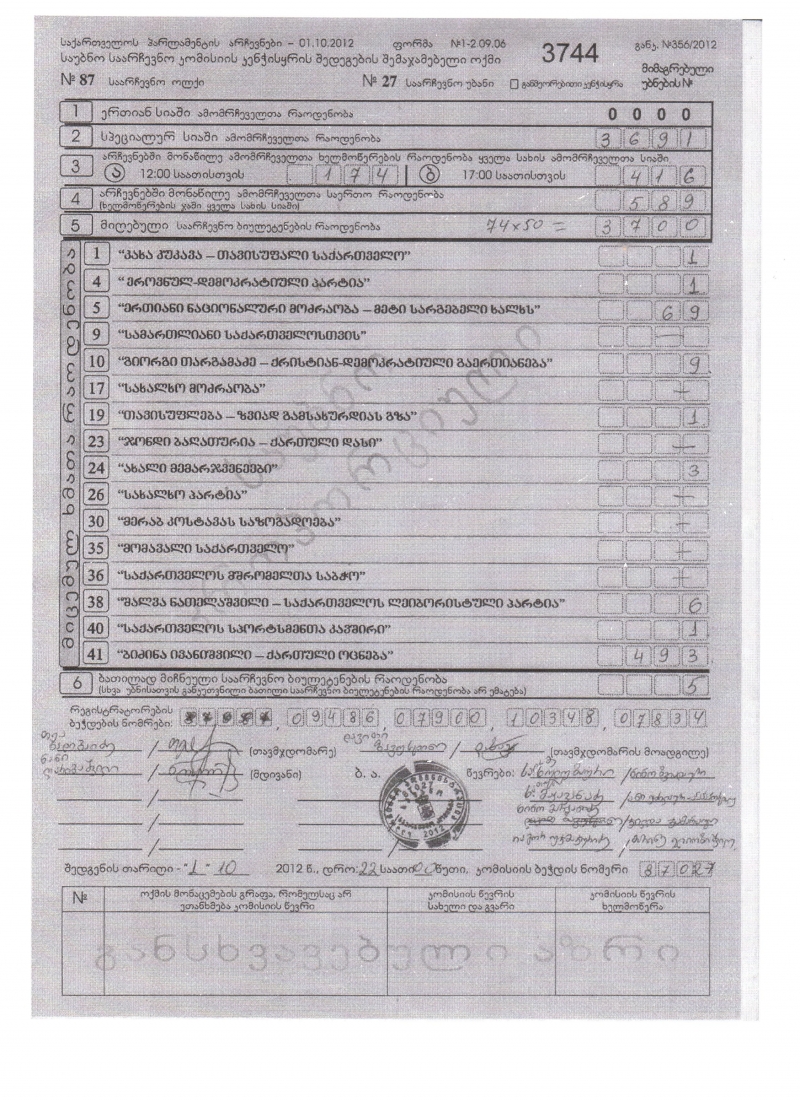 საქართველოს პარლამენტის არჩევნები – 01.10.2012 ფორმა №1-2.09.06 3744 განკ. №356/2012
საუბნო საარჩევნო კომისიის კენჭისყრის შედეგების შემაჯამებელი ოქმი მიმაგრებული
№ 87 საარჩევნო ოლქი № 27 საარჩევნო უბანი განმეორებითი კენჭისყრა უბნების №
1 ერთიან სიაში ამომრჩეველთა რაოდენობა 0 0 0 0
2 სპეციალურ სიაში ამომრჩეველთა რაოდენობა 3 6 9 1
3 არჩევნებში მონაწილე ამომრჩეველთა ხელმოწერების რაოდენობა ყველა სახის ამომრჩეველთა სიაში
ა 12:00 საათისთვის 1 7 4 ბ 17:00 საათისთვის 4 1 6
4 არჩევნებში მონაწილე ამომრჩეველთა საერთო რაოდენობა 5 8 9
(ხელმოწერების ჯამი ყველა სახის სიაში)
5 მიღებული საარჩევნო ბიულეტენების რაოდენობა 74x50 = 3 7 0 0
მიცემულ ხმათა რაოდენობა
1 "კახა კუკავა – თავისუფალი საქართველო" 1
4 "ეროვნულ-დემოკრატიული პარტია" 1
5 "ერთიანი ნაციონალური მოძრაობა – მეტი სარგებელი ხალხს" 6 9
9 "სამართლიანი საქართველოსთვის" —
10 "გიორგი თარგამაძე – ქრისტიან-დემოკრატიული გაერთიანება" 9
17 "სახალხო მოძრაობა" —
19 "თავისუფლება – ზვიად გამსახურდიას გზა" 1
23 "ჯონდი ბაღათურია – ქართული დასი" —
24 "ახალი მემარჯვენეები" 3
26 "სახალხო პარტია" —
30 "მერაბ კოსტავას საზოგადოება" —
35 "მომავალი საქართველო" —
36 "საქართველოს მშრომელთა საბჭო" —
38 "შალვა ნათელაშვილი – საქართველოს ლეიბორისტული პარტია" 6
40 "საქართველოს სპორტსმენთა კავშირი" 1
41 "ბიძინა ივანიშვილი – ქართული ოცნება" 4 9 3
საუბნო
პროპორციული
6 ბათილად მიჩნეული საარჩევნო ბიულეტენების რაოდენობა 5
(სხვა უბნისათვის განკუთვნილი ბათილი საარჩევნო ბიულეტენების რაოდენობა არ ემატება)
რეგისტრატორების
ბეჭდების ნომრები: , 09486, 07900, 10348, 07834
თეა დავითი
/ (თავმჯდომარე) / (თავმჯდომარის მოადგილე)
ნანი
/ (მდივანი) ბ. ა. წევრები:
შედგენის თარიღი - "1" 10 2012 წ., დრო: 22 საათი 00 წუთი, კომისიის ბეჭდის ნომერი 87027
№ ოქმის მონაცემების გრაფა, რომელსაც არ ეთანხმება კომისიის წევრი კომისიის წევრის სახელი და გვარი კომისიის წევრის ხელმოწერა
განსხვავებული აზრი